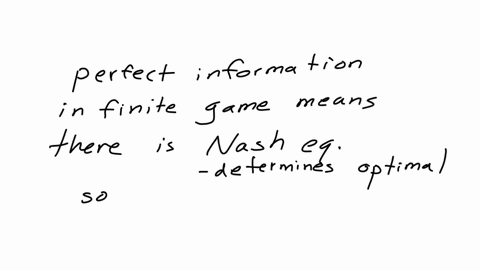 perfect information
in finite game means
there is Nash eq.
-determines optimal
so